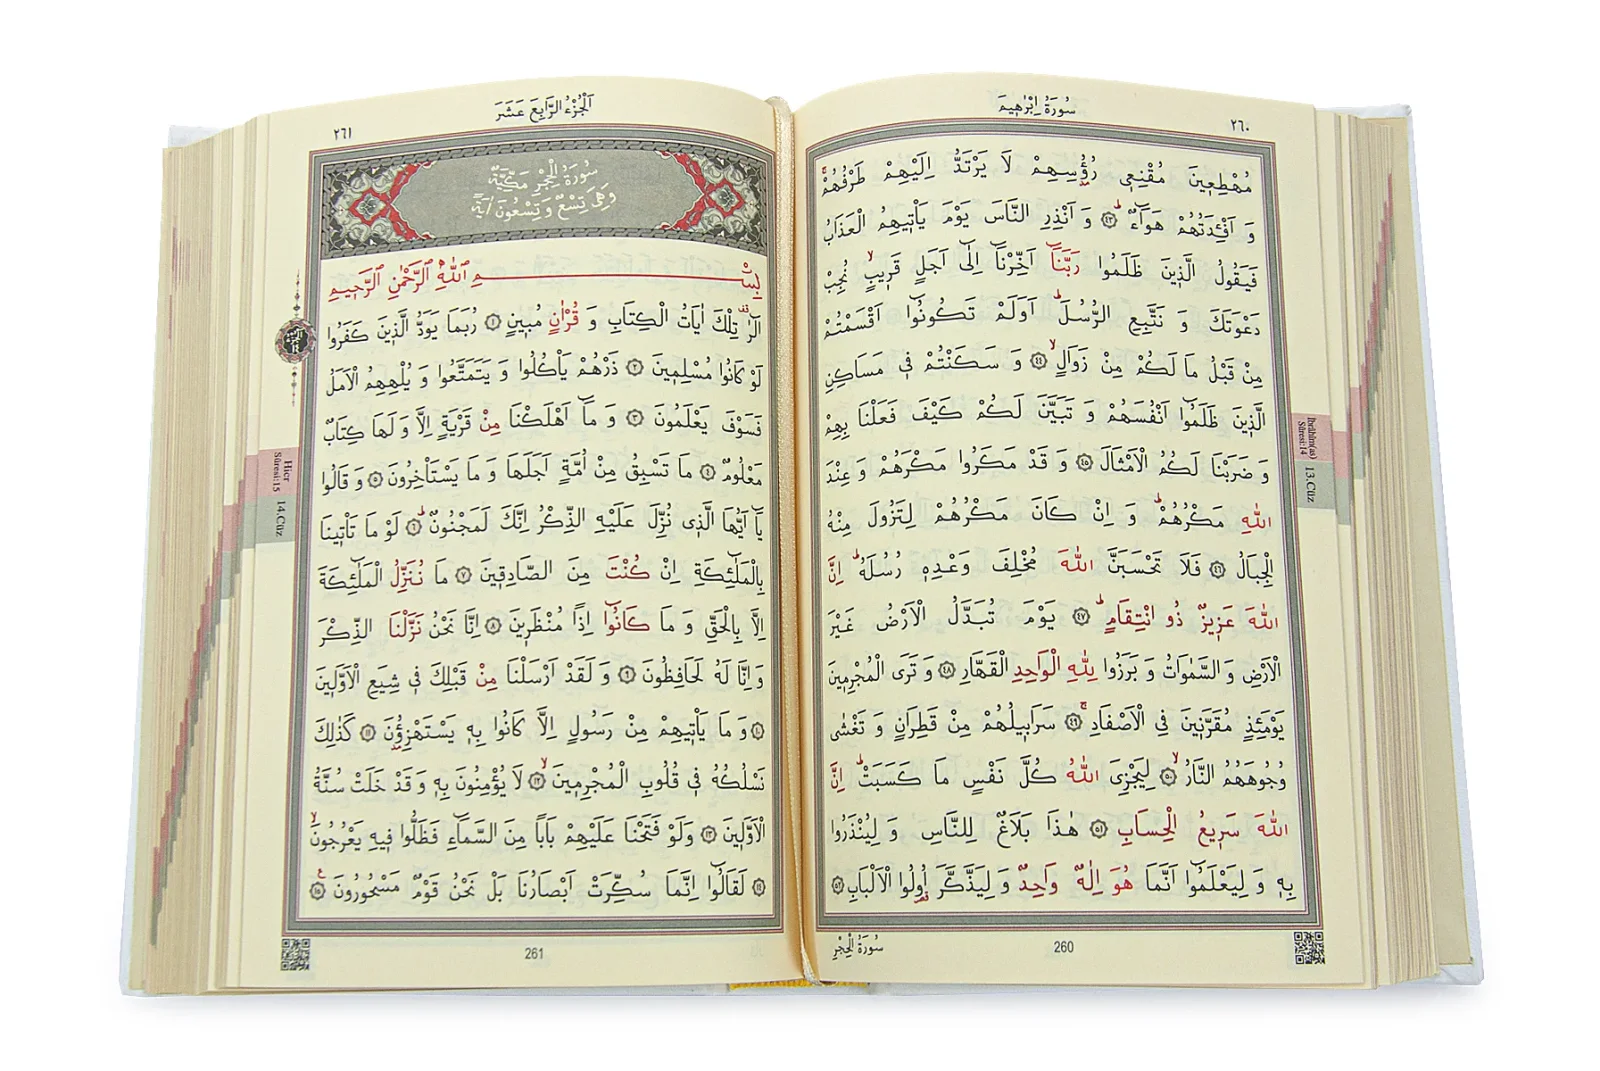 سُورَةُ اِبْرٰهٖيمَ
٢٦٠
مُهْطِعٖينَ مُقْنِعٖى رُؤُسِهِمْ لَا يَرْتَدُّ اِلَيْهِمْ طَرْفُهُمْۚ
وَ اَفْـِٔدَتُهُمْ هَوَٓاءٌؕ ﴿٤٣﴾ وَ اَنْذِرِ النَّاسَ يَوْمَ يَأْتٖيهِمُ الْعَذَابُ
فَيَقُولُ الَّذٖينَ ظَلَمُوا رَبَّنَٓا اَخِّرْنَٓا اِلٰٓى اَجَلٍ قَرٖيبٍۙ نُجِبْ
دَعْوَتَكَ وَ نَتَّبِعِ الرُّسُلَؕ اَوَلَمْ تَكُونُٓوا اَقْسَمْتُمْ
مِنْ قَبْلُ مَا لَكُمْ مِنْ زَوَالٍۙ ﴿٤٤﴾ وَ سَكَنْتُمْ فٖى مَسَاكِنِ
الَّذٖينَ ظَلَمُٓوا اَنْفُسَهُمْ وَ تَبَيَّنَ لَكُمْ كَيْفَ فَعَلْنَا بِهِمْ
وَ ضَرَبْنَا لَكُمُ الْاَمْثَالَ ﴿٤٥﴾ وَ قَدْ مَكَرُوا مَكْرَهُمْ وَ عِنْدَ
اللّٰهِ مَكْرُهُمْؕ وَ اِنْ كَانَ مَكْرُهُمْ لِتَزُولَ مِنْهُ
الْجِبَالُ ﴿٤٦﴾ فَلَا تَحْسَبَنَّ اللّٰهَ مُخْلِفَ وَعْدِهٖ رُسُلَهُؕ اِنَّ
اللّٰهَ عَزٖيزٌ ذُو انْتِقَامٍؕ ﴿٤٧﴾ يَوْمَ تُبَدَّلُ الْاَرْضُ غَيْرَ
الْاَرْضِ وَ السَّمٰوَاتُ وَ بَرَزُوا لِلّٰهِ الْوَاحِدِ الْقَهَّارِ ﴿٤٨﴾ وَ تَرَى الْمُجْرِمٖينَ
يَوْمَئِذٍ مُقَرَّنٖينَ فِى الْاَصْفَادِۚ ﴿٤٩﴾ سَرَابٖيلُهُمْ مِنْ قَطِرَانٍ وَ تَغْشٰى
وُجُوهَهُمُ النَّارُۙ ﴿٥٠﴾ لِيَجْزِىَ اللّٰهُ كُلَّ نَفْسٍ مَا كَسَبَتْؕ اِنَّ
اللّٰهَ سَرٖيعُ الْحِسَابِ ﴿٥١﴾ هٰذَا بَلَاغٌ لِلنَّاسِ وَ لِيُنْذَرُوا
بِهٖ وَ لِيَعْلَمُٓوا اَنَّمَا هُوَ اِلٰهٌ وَاحِدٌ وَ لِيَذَّكَّرَ اُولُوا الْاَلْبَابِ ﴿٥٢﴾
260
سُورَةُ الْحِجْرِ
İbrâhîm(as) Sûresi:14
13.Cüz
اَلْجُزْءُ الرَّابِعَ عَشَرَ
٢٦١
سُورَةُ الْحِجْرِ مَكِّيَّةٌ
وَهِىَ تِسْعٌ وَ تِسْعُونَ اٰيَةً
بِسْمِ اللّٰهِ الرَّحْمٰنِ الرَّحٖيمِ
الٓرٰ تِلْكَ اٰيَاتُ الْكِتَابِ وَ قُرْاٰنٍ مُبٖينٍ ﴿١﴾ رُبَمَا يَوَدُّ الَّذٖينَ كَفَرُوا
لَوْ كَانُوا مُسْلِمٖينَ ﴿٢﴾ ذَرْهُمْ يَأْكُلُوا وَ يَتَمَتَّعُوا وَ يُلْهِهِمُ الْاَمَلُ
فَسَوْفَ يَعْلَمُونَ ﴿٣﴾ وَ مَٓا اَهْلَكْنَا مِنْ قَرْيَةٍ اِلَّا وَ لَهَا كِتَابٌ
مَعْلُومٌ ﴿٤﴾ مَا تَسْبِقُ مِنْ اُمَّةٍ اَجَلَهَا وَ مَا يَسْتَأْخِرُونَ ﴿٥﴾ وَ قَالُوا
يَٓا اَيُّهَا الَّذٖى نُزِّلَ عَلَيْهِ الذِّكْرُ اِنَّكَ لَمَجْنُونٌؕ ﴿٦﴾ لَوْ مَا تَأْتٖينَا
بِالْمَلٰٓئِكَةِ اِنْ كُنْتَ مِنَ الصَّادِقٖينَ ﴿٧﴾ مَا نُنَزِّلُ الْمَلٰٓئِكَةَ
اِلَّا بِالْحَقِّ وَ مَا كَانُٓوا اِذًا مُنْظَرٖينَ ﴿٨﴾ اِنَّا نَحْنُ نَزَّلْنَا الذِّكْرَ
وَ اِنَّا لَهُ لَحَافِظُونَ ﴿٩﴾ وَ لَقَدْ اَرْسَلْنَا مِنْ قَبْلِكَ فٖى شِيَعِ الْاَوَّلٖينَ
﴿١٠﴾ وَ مَا يَأْتٖيهِمْ مِنْ رَسُولٍ اِلَّا كَانُوا بِهٖ يَسْتَهْزِؤُنَ ﴿١١﴾ كَذٰلِكَ
نَسْلُكُهُ فٖى قُلُوبِ الْمُجْرِمٖينَۙ ﴿١٢﴾ لَا يُؤْمِنُونَ بِهٖ وَ قَدْ خَلَتْ سُنَّةُ
الْاَوَّلٖينَ ﴿١٣﴾ وَلَوْ فَتَحْنَا عَلَيْهِمْ بَابًا مِنَ السَّمَٓاءِ فَظَلُّوا فٖيهِ يَعْرُجُونَۙ
﴿١٤﴾ لَقَالُٓوا اِنَّمَا سُكِّرَتْ اَبْصَارُنَا بَلْ نَحْنُ قَوْمٌ مَسْحُورُونَ ﴿١٥﴾
261
Hicr Sûresi:15
14.Cüz